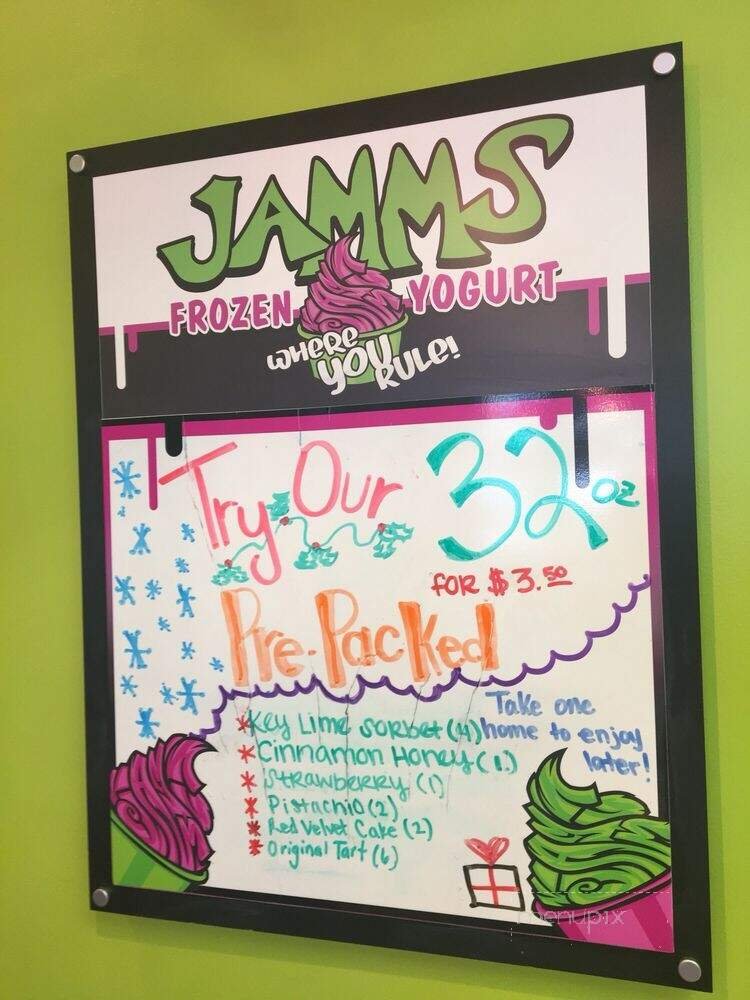 JAMMS
FROZEN YOGURT
WHERE
YOU
RULE!
Try Our 32 oz
FOR $3.50
Pre-Packed
Take one
home to enjoy
later!
* Key Lime Sorbet (4)
* Cinnamon Honey (1)
* Strawberry (1)
* Pistachio (2)
* Red Velvet Cake (2)
* Original Tart (6)
menupix